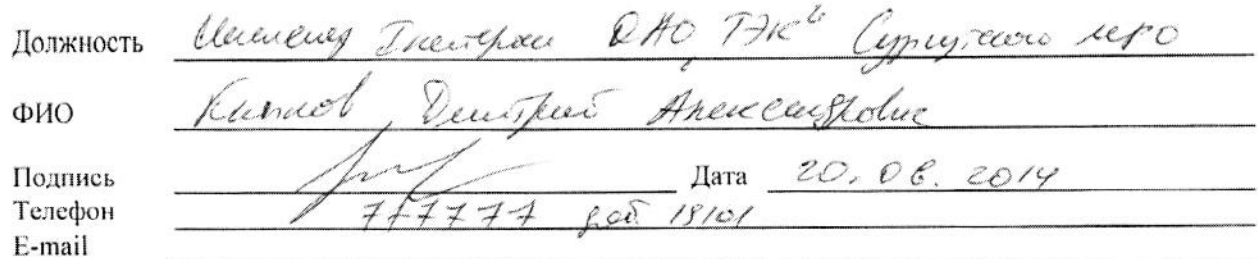 Должность ОАО "ТЭК" Сургутского МРО
ФИО Дмитрий Александрович
Подпись Дата 20.06.2014
Телефон 777777 доб. 18101
E-mail